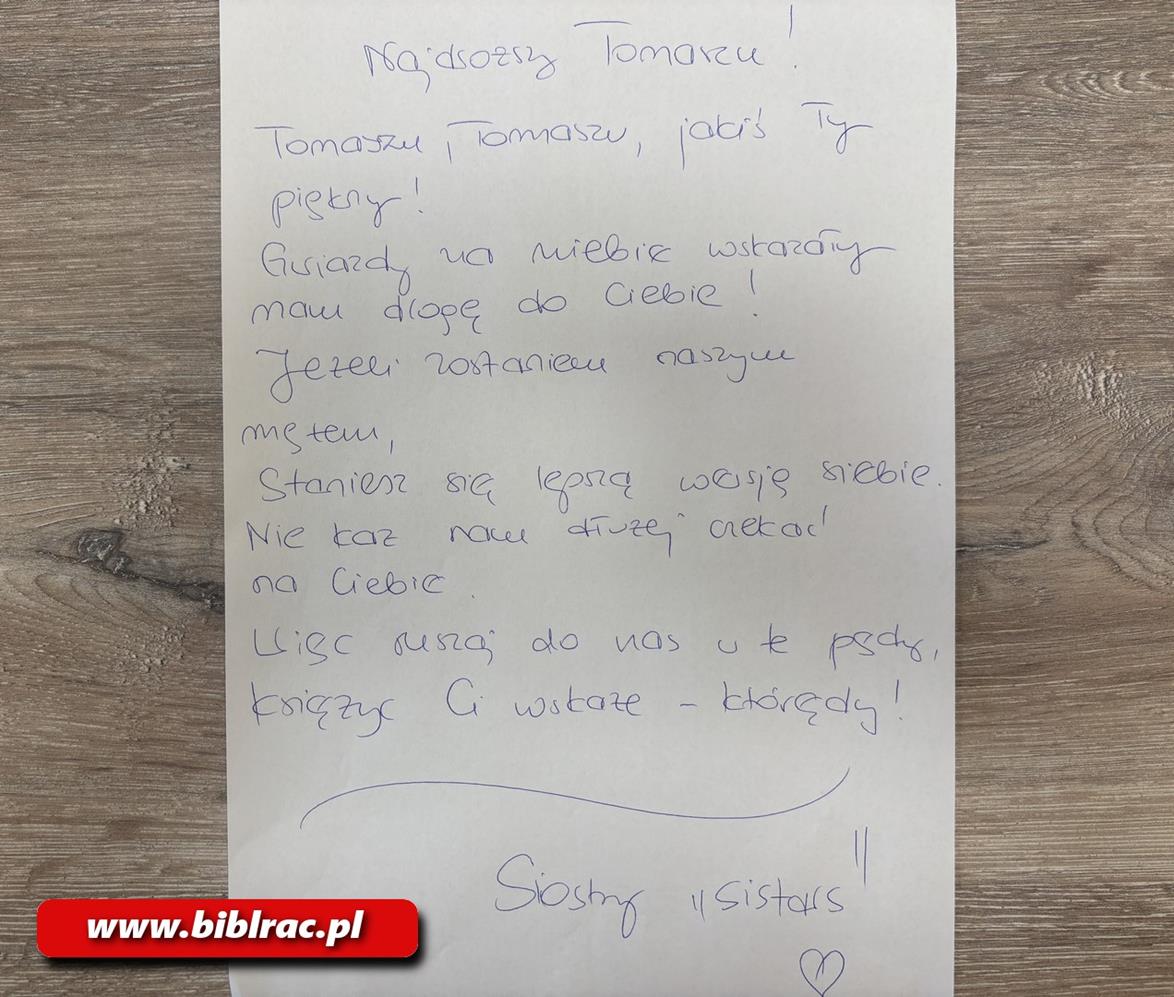 Najdroższy Tomaszu!
Tomaszu, Tomaszu, jakiś Ty
piękny!
Gwiazdy na niebie wskazały
nam drogę do Ciebie!
Jeżeli zostaniesz naszym
mężem,
Staniesz się lepszą wersją siebie.
Nie każ nam dłużej czekać
na Ciebie.
Więc ruszaj do nas w te pędy,
księżyc Ci wskaże - którędy!
Siostry "Sistars"
www.biblrac.pl